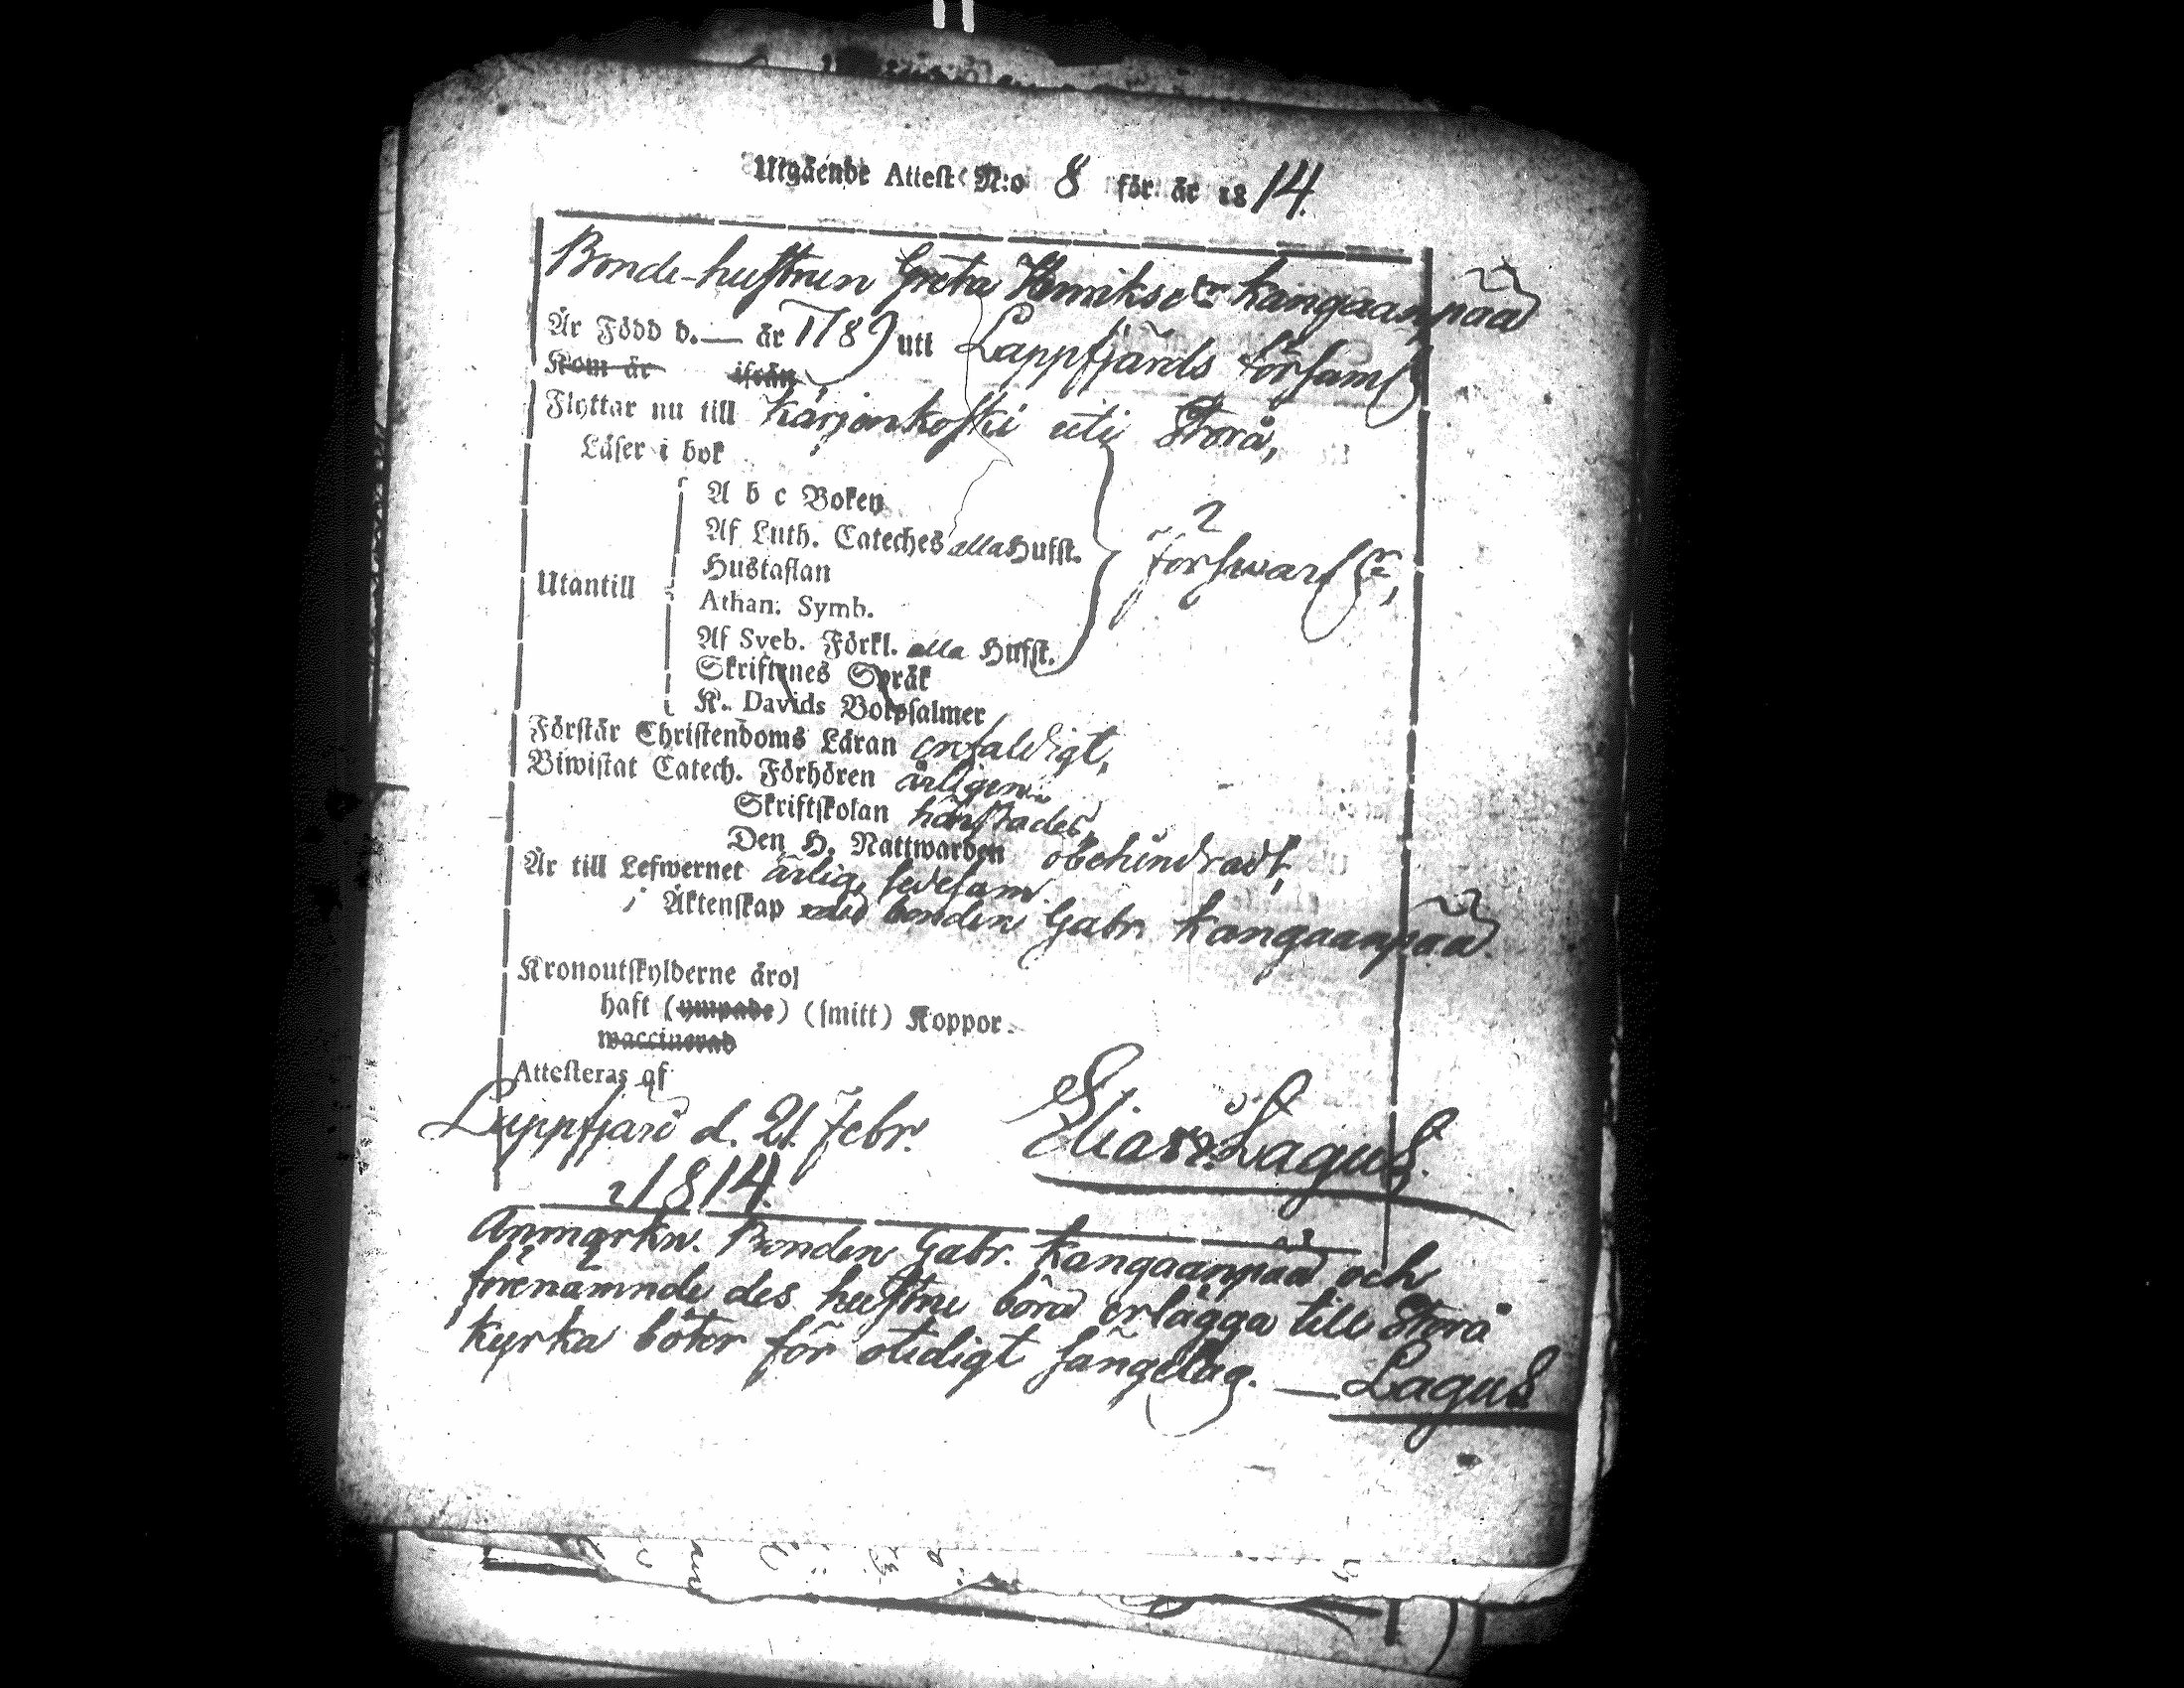 Utgående Attest N:o 8 för år 1814.
Bonde-hustrun Greta Henriksdr Kangaanpää
Är Född d. — år 1789 utt Lappfjärds församl
Kom år ifrån
Flyttar nu till Kärjenkoski uti Storå,
Läser i bok
A b c Boken
Af Luth. Cateches alla Hufst.
Hustaflan
försvarl.
Utantill
Athan. Symb.
Af Sveb. Förkl. alla Hufst.
Skriftenes Språk
K. Davids Botpsalmer
Förstår Christendoms Läran enfaldigt,
Biwistat Catech. Förhören årligen
Skriftskolan
Den H. Nattwarden obehindradt,
Är till Lefwernet ärlig, sedesam.
i Äktenskap med bonden Gabr. Kangaanpää.
Kronoutskylderne äro
haft (ympade) (smitt) Koppor.
waccinerad
Attesteras af
Lappfjärd d. 21. Febr. Elias Lagus.
1814.
Anmärkn. Bonden Gabr. Kangaanpää och
förenämnde des hustru böra erlägga till Storå
kyrka böter för otidigt sängelag. — Lagus